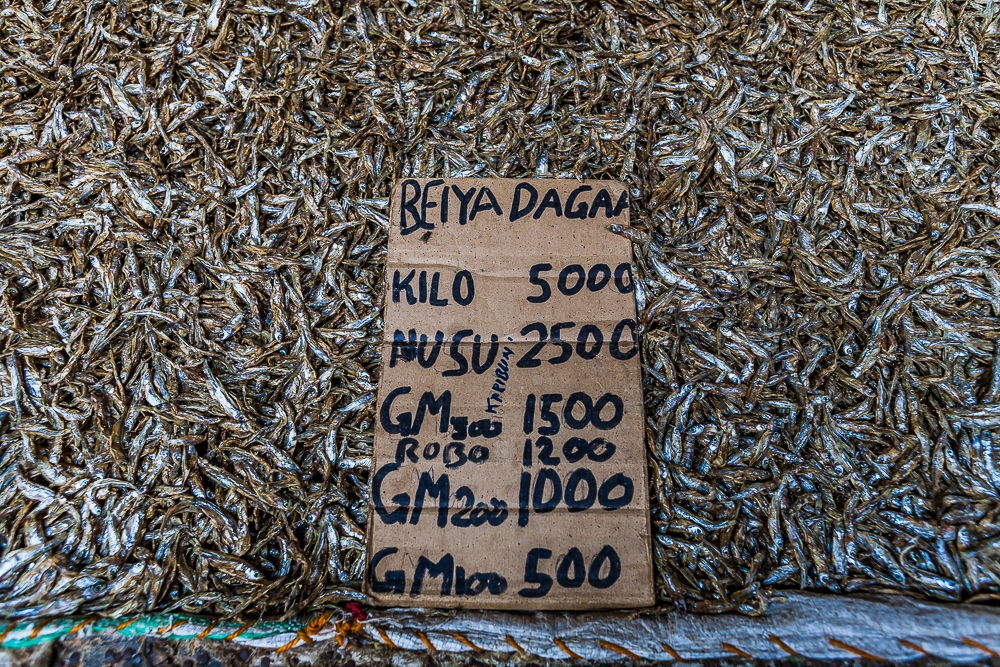 BEIYA DAGAA
KILO 5000
NUSU 2500
KARIBUNI
GM 300 1500
ROBO 1200
GM 200 1000
GM 100 500